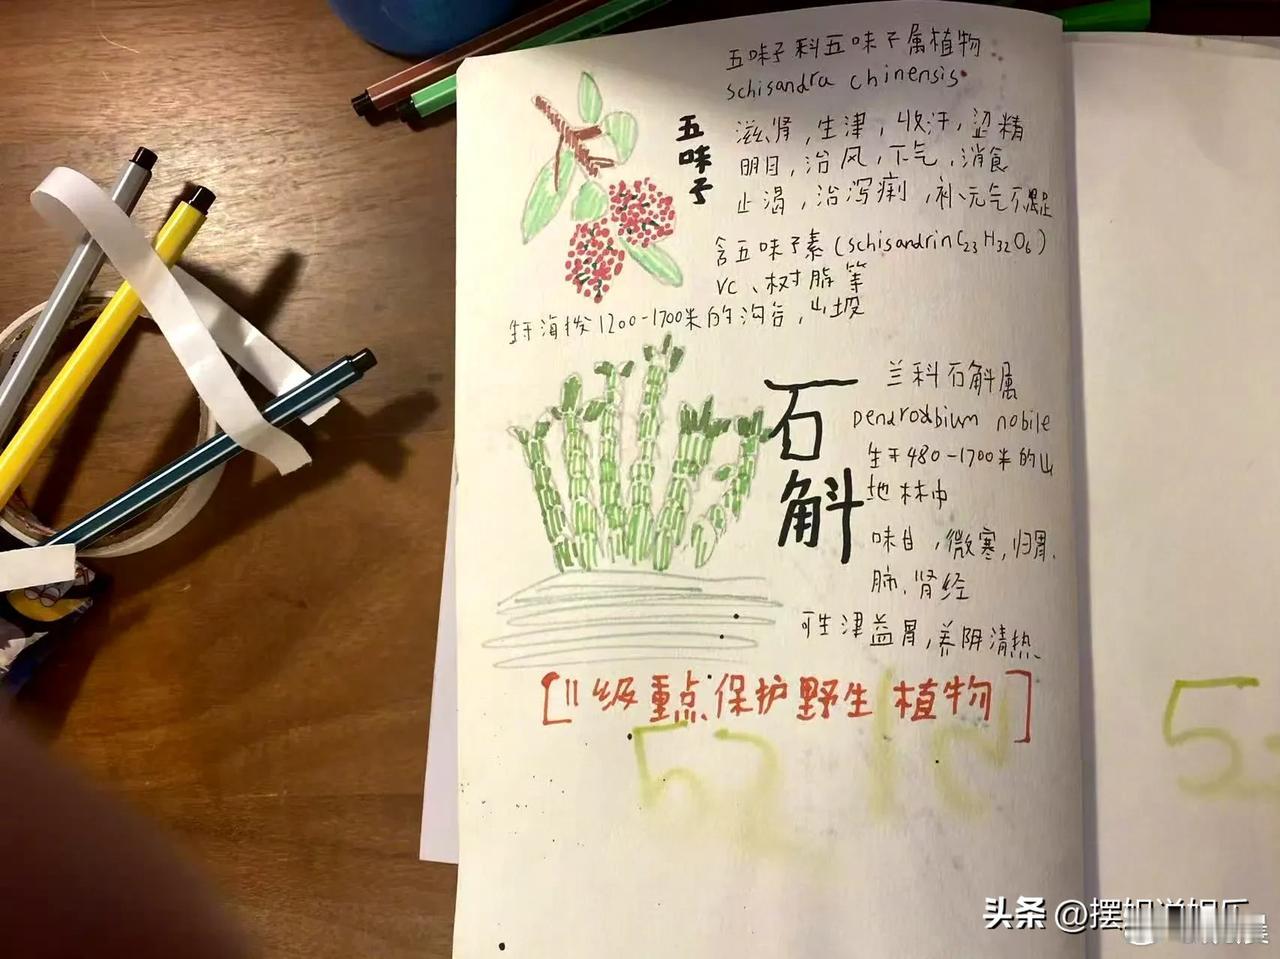 五味子科五味子属植物
schisandra chinensis
五味子
滋肾，生津，收汗，涩精
明目，治风，下气，消食
止渴，治泻痢，补元气不足
含五味子素(schisandrin C23 H32 O6)
VC、树脂等
生于海拔1200-1700米的沟谷，山坡
石斛
兰科石斛属
Dendrobium nobile
生于480-1700米的山
地林中
味甘，微寒，归胃、
肺、肾经
可生津益胃，养阴清热、
[II级重点保护野生植物]
52
5
头条 @摆姐说娱乐